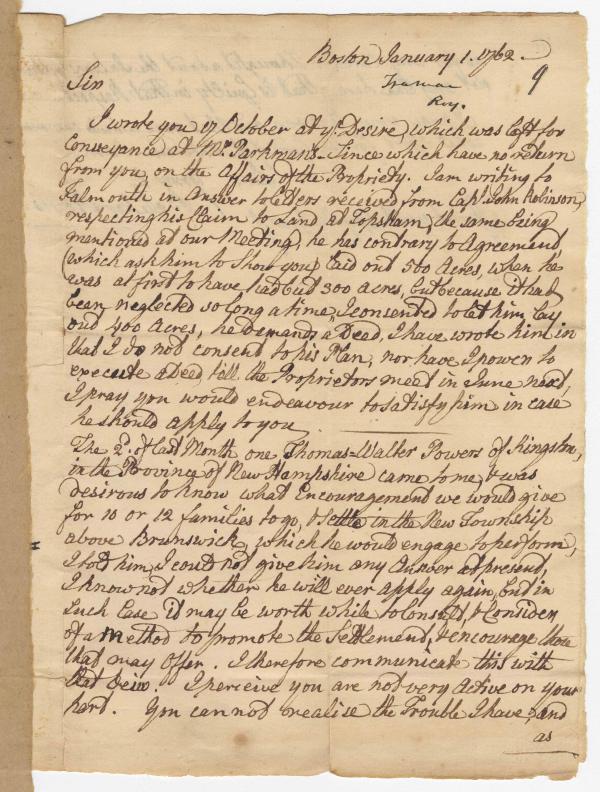 Boston January 1. 1762.
9
Sir
I wrote you 17 October at yr. Desire, which was left for
Conveyance at Mr. Parkmans. Since which have no return
from you, on the Affairs of the Propriety. I am writing to
Falmouth in Answer to letters received from Capt. John Robinson,
respecting his Claim to Land, at Topsham, the same being
mentioned at our Meeting, he has contrary to Agreement
(which ask him to Show you) laid out 500 Acres, when he
was at first to have had but 300 Acres, but because it had
been neglected so long a time, I consented to let him lay
out 400 Acres, he Demands a Deed, I have wrote him in
that I do not consent to his Plan, nor have I power to
execute a Deed, till the Proprietors meet in June next,
I pray you would endeavour to satisfy him in case
he should apply to you
The 2d. of last Month one Thomas=Walter Powers of Kingston,
in the Province of New Hampshire came to me, & was
desirous to know what Encouragement we would give
for 10 or 12 families to go, & Settle in the New Township
above Brunswick, which he would engage to perform,
I told him, I could not give him any Answer at present,
I know not whether he will ever apply again, but in
such Case it may be worth while to Consult, & Consider
of a Method to promote the Settlement, & encourage those
that may offer. I therefore communicate this with
that Veiw. I perceive you are not very Active on your
part. You can not realise the Trouble I have, and
as